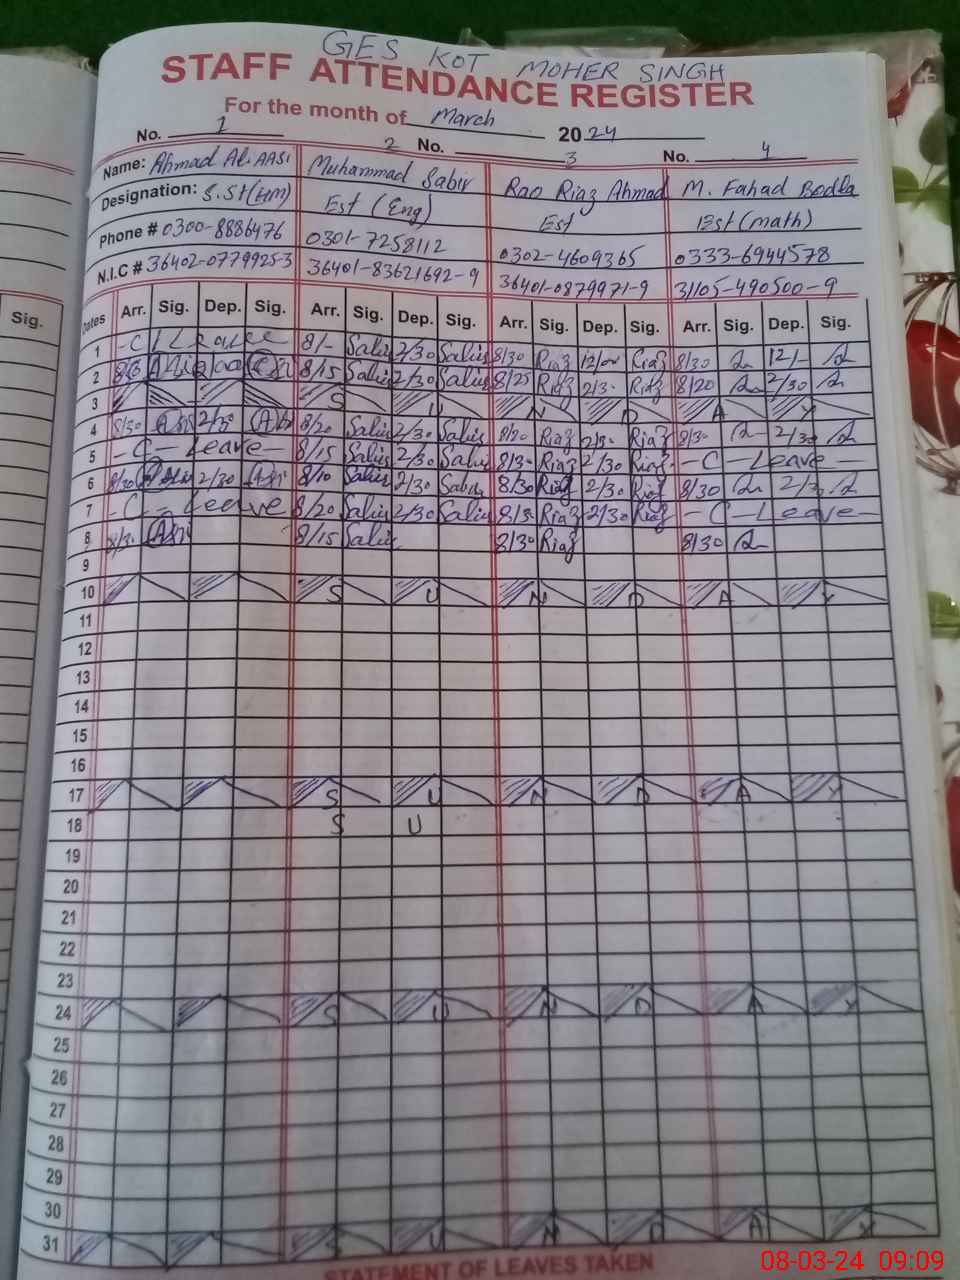 GES KOT MOHER SINGH
STAFF ATTENDANCE REGISTER
For the month of March 2024
No. 1 2 No. 3 No. 4
Name: Ahmad Ali AASI Muhammad Sabir Rao Riaz Ahmad M. Fahad Bodla
Designation: S.St(HM) Est (Eng) Est Est (math)
Phone # 0300-8886476 0301-7258112 0302-4609365 0333-6944578
N.I.C # 36402-0779925-3 36401-83621692-9 36401-0879971-9 31105-490500-9
Dates Arr. Sig. Dep. Sig. Arr. Sig. Dep. Sig. Arr. Sig. Dep. Sig. Arr. Sig. Dep. Sig.
Sig.
1 -C Leave 8/- 2/30 8/30 Riaz Riaz 8/30 12/-
2 8/15 2/30 8/25 Riaz 2/30 Riaz 8/20 2/30
3 S U N D A Y
4 8/30 2/30 8/20 2/30 8/20 Riaz 2/30 Riaz 8/30 2/30
5 -C- Leave- 8/15 2/30 8/30 Riaz 2/30 Riaz -C- Leave-
6 8/30 2/30 8/10 2/30 8/30 Riaz 2/30 Riaz 8/30 2/30
7 -C- Leave 8/20 2/30 8/30 Riaz 2/30 Riaz -C-Leave-
8 8/30 8/15 8/30 Riaz 8/30
9
10 S U N D A Y
11
12
13
14
15
16
17 S U N D A Y
18 S U
19
20
21
22
23
24 S U N D A Y
25
26
27
28
29
30
31 S U N D A Y
STATEMENT OF LEAVES TAKEN
08-03-24 09:09